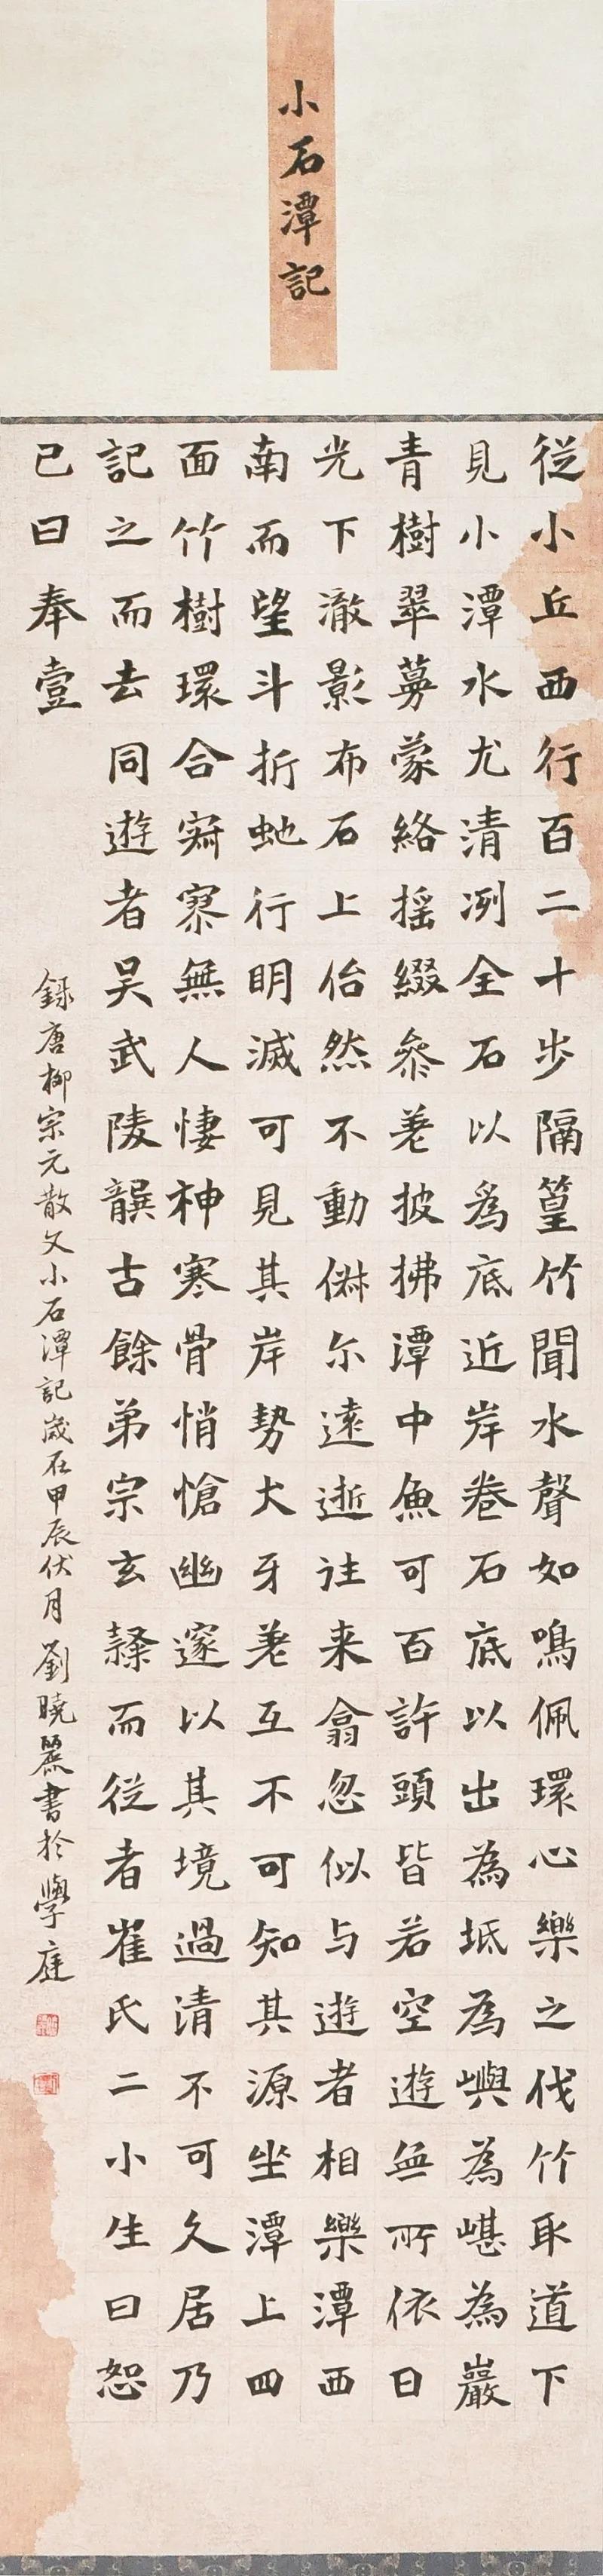 小石潭記
從小丘西行百二十步隔篁竹聞水聲如鳴佩環心樂之伐竹取道下
見小潭水尤清冽全石以為底近岸卷石底以出為坻為嶼為嵁為巖
青樹翠蔓蒙絡摇綴參差披拂潭中魚可百許頭皆若空遊無所依日
光下澈影布石上佁然不動俶尔遠逝往来翕忽似与遊者相樂潭西
南而望斗折虵行明滅可見其岸勢犬牙差互不可知其源坐潭上四
面竹樹環合寂寥無人悽神寒骨悄愴幽邃以其境過清不可久居乃
記之而去同遊者吴武陵龔古餘弟宗玄隸而從者崔氏二小生曰恕
己曰奉壹
録唐柳宗元散文小石潭記歲在甲辰伏月劉曉麗書於學庭